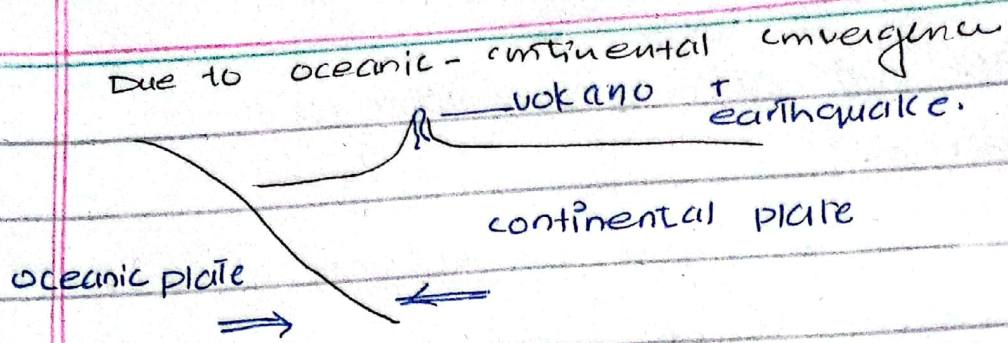 Due to oceanic - continental convergence
volcano + earthquake.
continental plate
oceanic plate